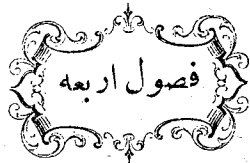 فصول اربعه